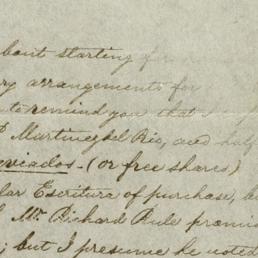 bout starting for
ry arrangements for
to remind you that
Martinez del Rio, and half
(or free shares)
lar Escritura of purchase, b
Mr. Richard Rule promis
; but I presume he acted